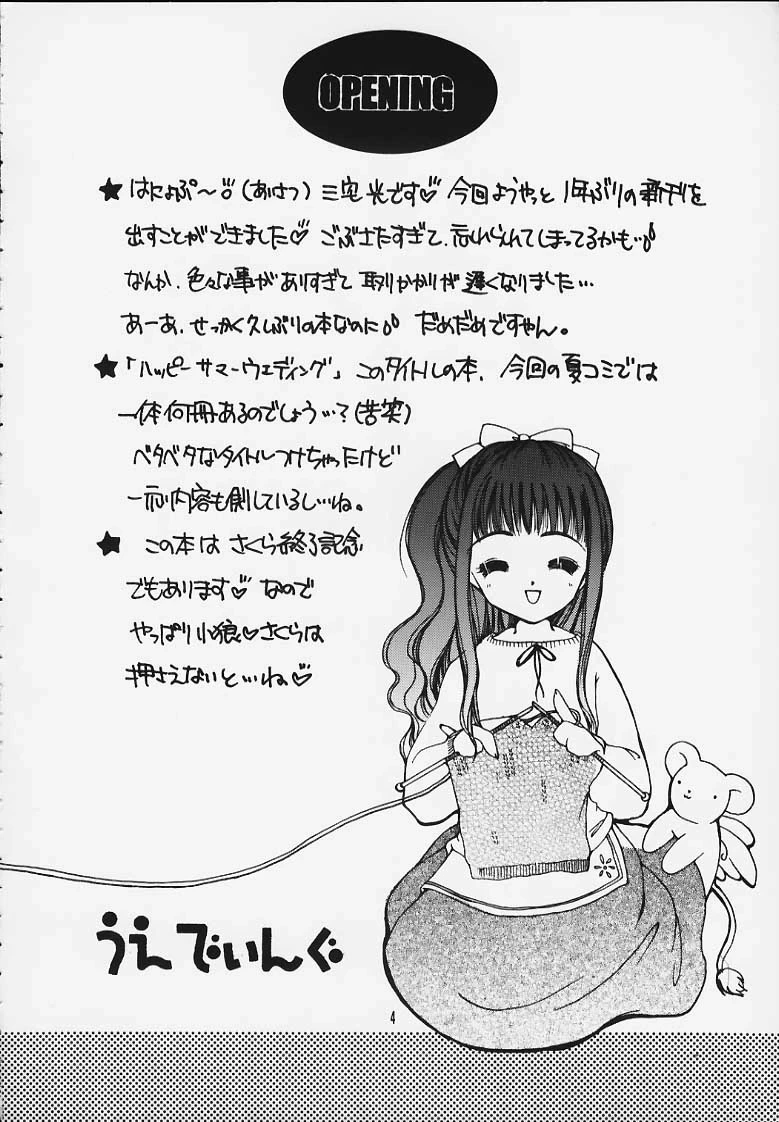 OPENING
★ はにょぷ〜 (あいさつ) 三宅光です♡ 今回ようやっと 1年ぶりの新刊を
出すことができました♡ ごぶさたすぎて、忘れられてしまってるかも…
なんか、色々な事がありすぎて 取りかかりが遅くなりました…
あーあ、せっかく久しぶりの本なのに だめだめですやん。
★ 「ハッピーサマーウエディング」 このタイトルの本、今回の夏コミでは
一体何冊あるのでしょう…?(苦笑)
ベタベタなタイトルつけちゃったけど
一応内容も しているし…ね。
★ この本は さくら終了記念
でもあります♡ なので
やっぱり小狼♡さくらは
押さえないと…ね♡
うえでいんぐ
4